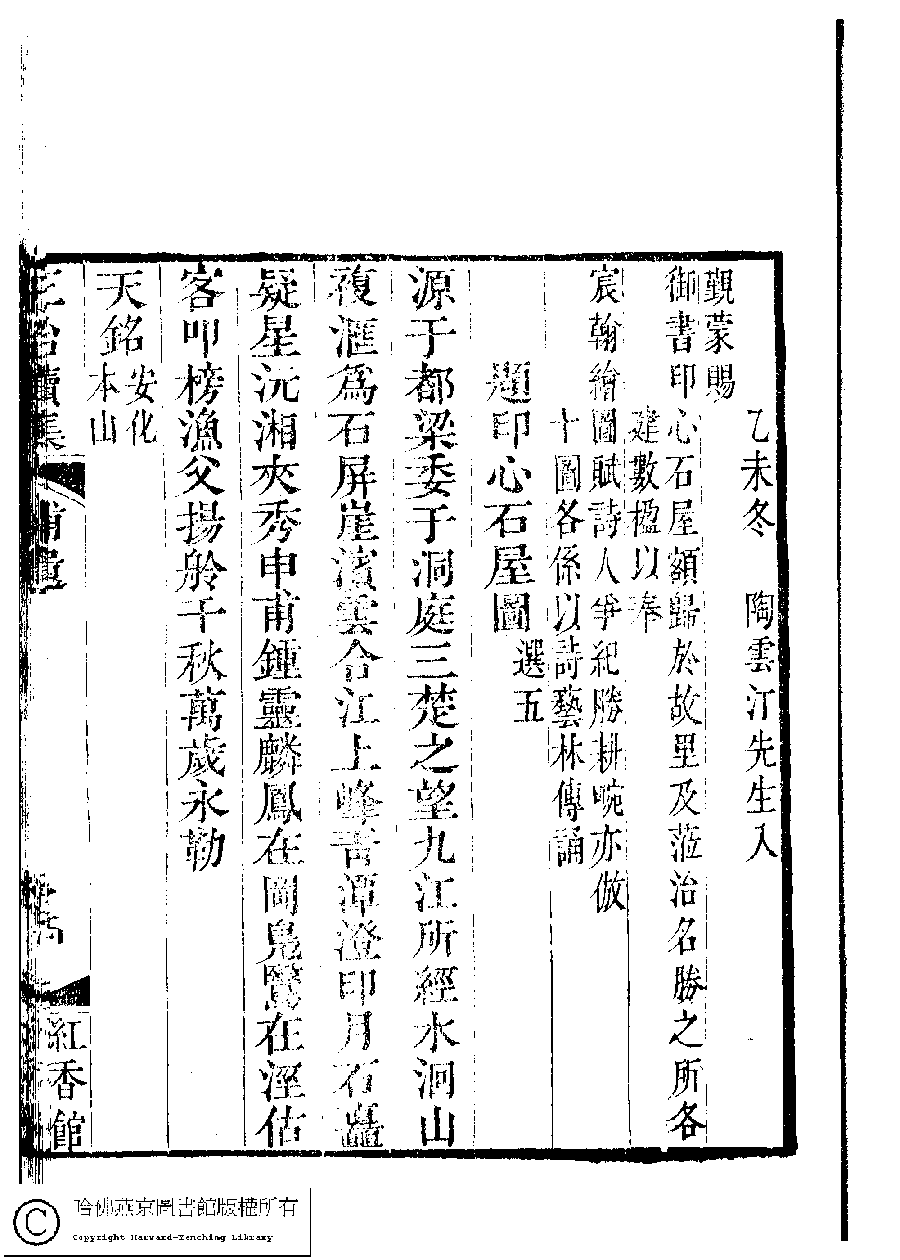 乙未冬　陶雲汀先生入
覲蒙賜
御書印心石屋額歸於故里及蒞治名勝之所各
建數楹以奉
宸翰繪圖賦詩人爭紀勝耕畹亦倣
十圖各係以詩藝林傳誦
題印心石屋圖 選五
源于都梁委于洞庭三楚之望九江所經水洄山
複滙爲石屏崖濱雲合江上峰靑潭澄印月石矗
疑星沅湘夾秀申甫鍾靈麟鳳在岡鳧鷖在涇估
客叩榜漁父揚舲千秋萬歲永勒
天銘 安化本山
續集
紅香館
哈佛燕京圖書館版權所有
Copyright Harvard-Yenching Library